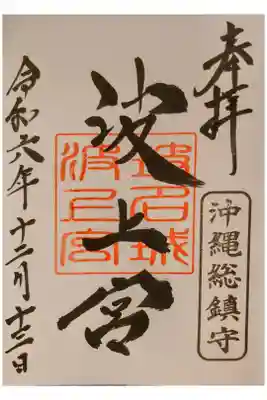 奉拝
沖縄総鎮守
波上宮
波上宮
令和六年十二月十三日